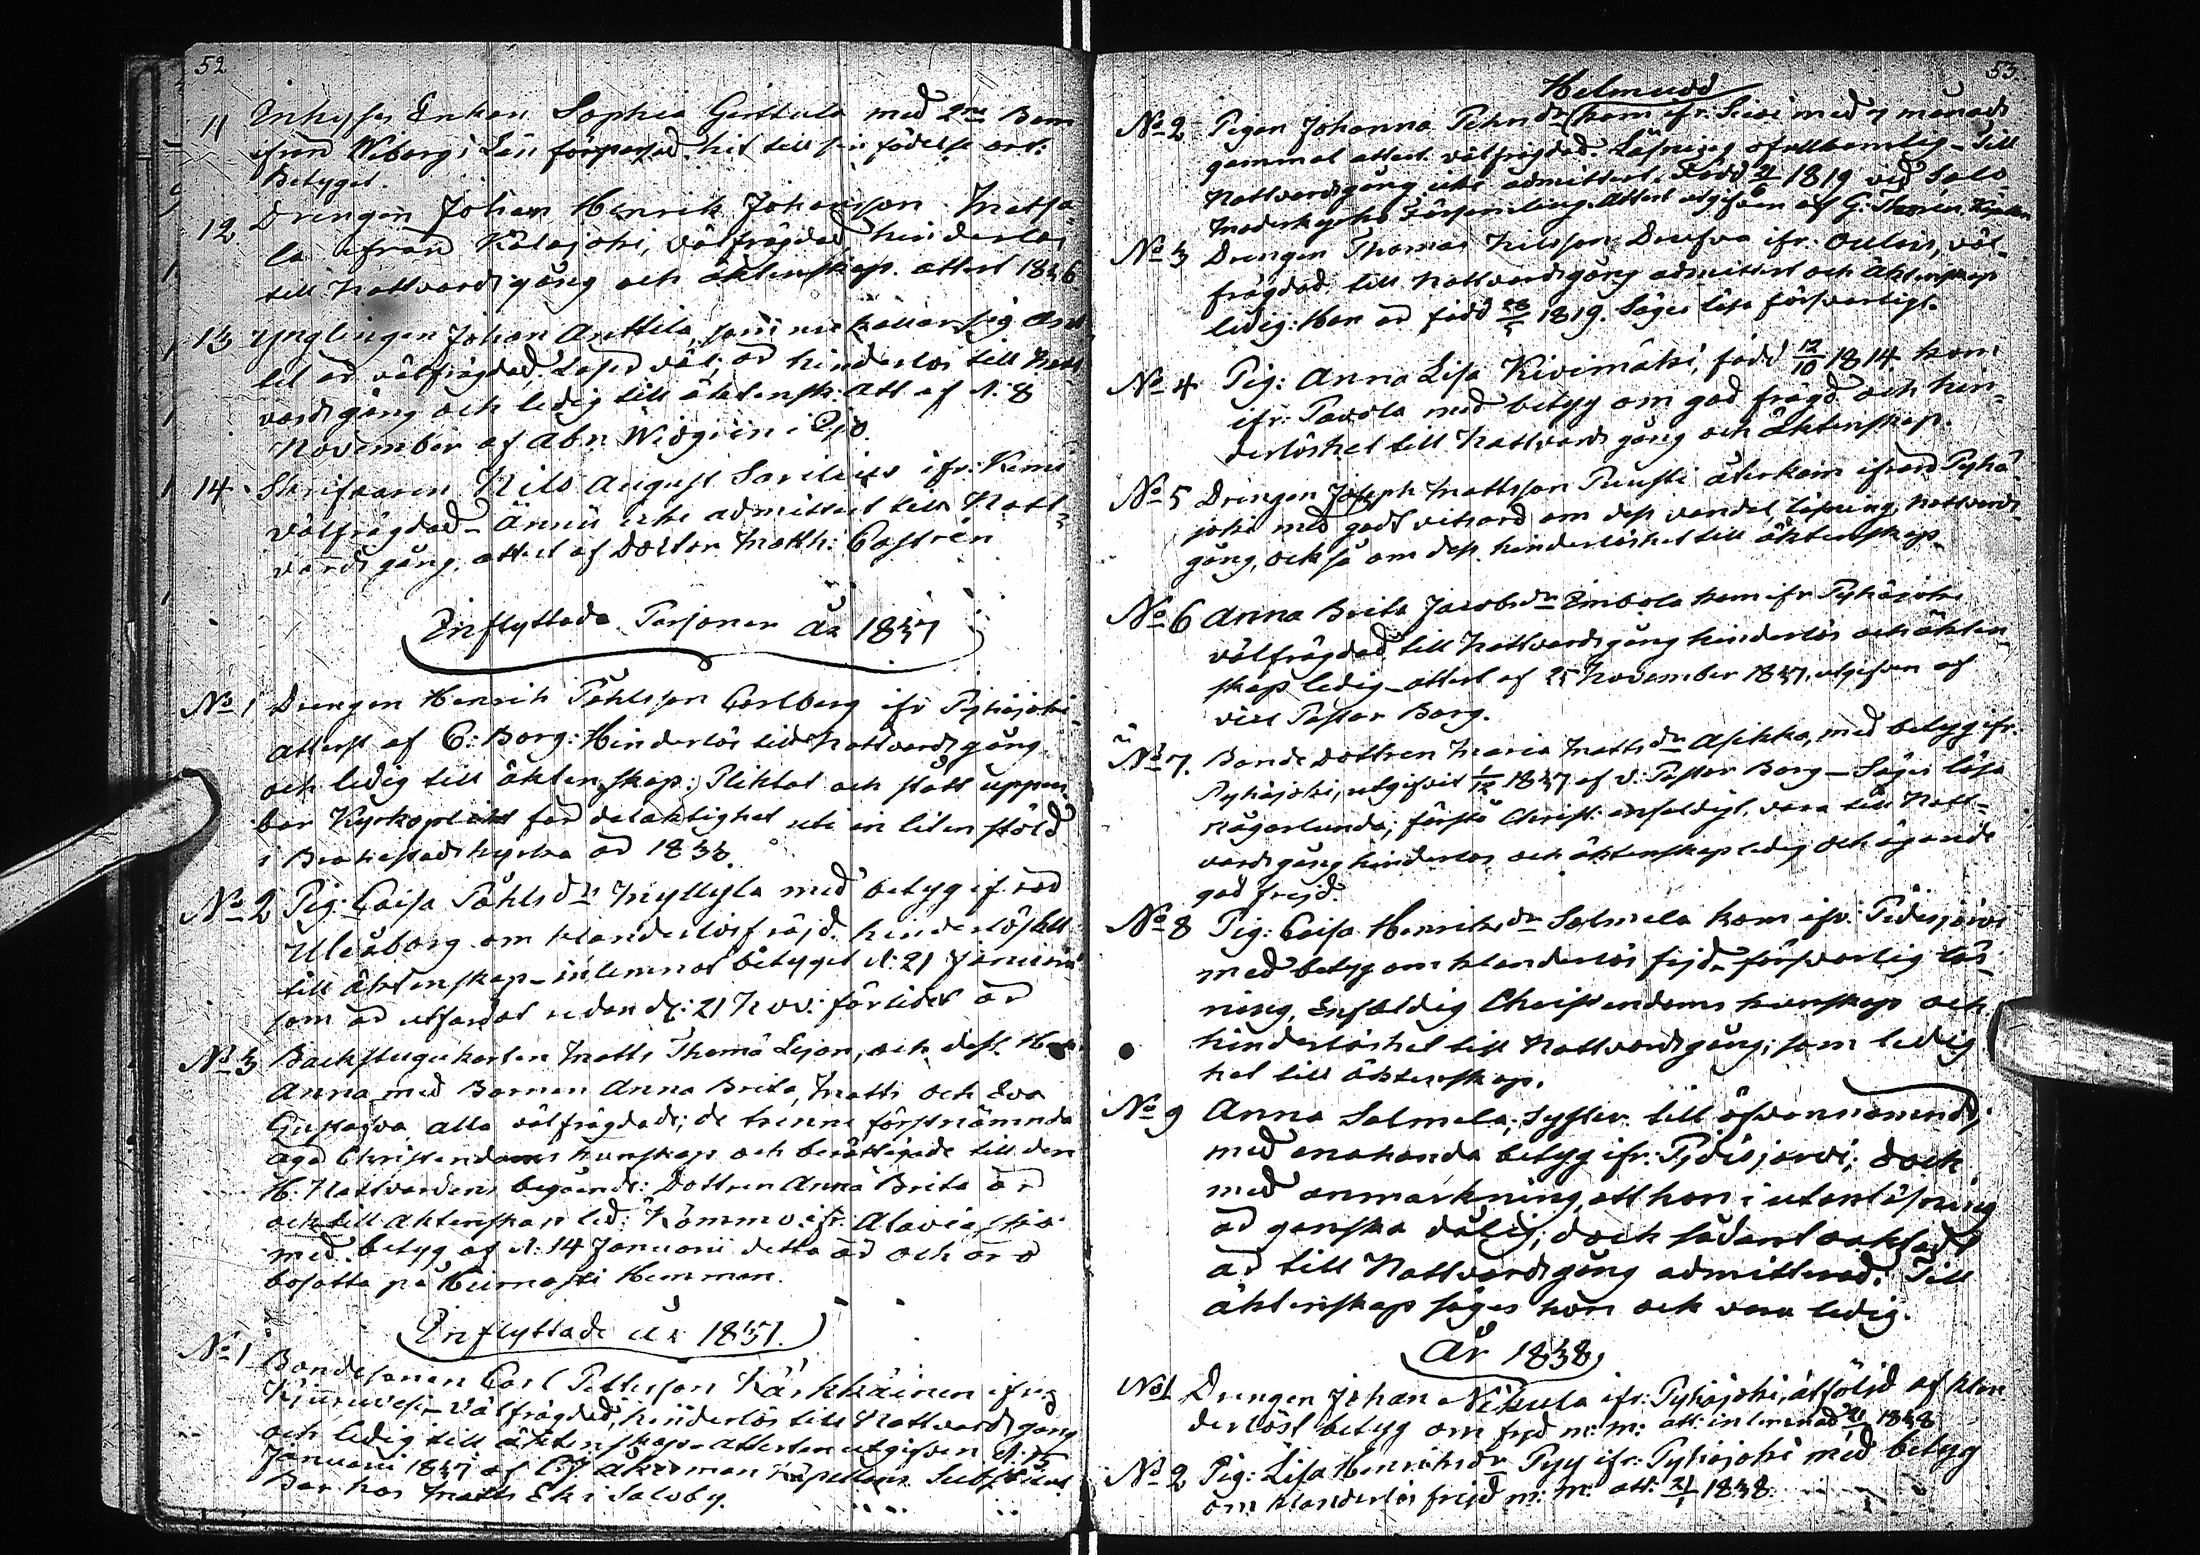 52
11 Inhyses Enkan Sophia Gerttula med 2ne Barn
ifrån Wiborgs Län förpassad hit till sin födelse ort.
Betyget.
12 Drengen Johan Henrik Johansson Matsa-
la ifrån Kalajoki, välfrägdad, hinderlös
till Nattvardsgång och äktenskap. attest 1836
13 Ynglingen Johan Anttila, som nu kallar sig
är välfrägdad, Läser väl, är hinderlös till Natt-
vardsgång och ledig till äktensk: Att af d. 8
November af Abr. Widgren i
14 Skrifvaren Nils August ifr: Kemi
välfrägdad – Ännu icke admitterad till Natt-
vardsgång, attest af Doctor Math: Castrén
Inflyttade Personer År 1837
No 1 Drengen Henrik Påhlsson Carlberg ifr Pyhäjoki
attest af C: Borg: Hinderlös till Nattvardsgång
och ledig till äktenskap; Pliktat och stått uppen-
bar Kyrkoplikt för delaktighet uti en liten stöld
i Brahestads kyrka år 1833.
No 2 Pig: Caisa Påhlsdr Myllylä med betyg ifrån
Uleåborg om klanderlös fräjd. hinderlöshet
till äktenskap – inlemnat betyget d: 21 Januarii
som är utfärdat redan d: 21 Nov: förlidet år
No 3 Backstugukarlen Matts Thomä Lejon, och dess
Anna med Barnen Anna Brita, Matts och Eva
Gustafva alla välfrägdade; de trenne förstnämnda
äga Christendoms kunskap och berättigade till den
H. Nattvardens begående: Dottren Anna Brita är
ock till äktenskap led: Kommo ifr: Alavieska
med betyg af d: 14 Januarii detta år och äro
bosatta på Hemman.
Inflyttade År 1837.
No 1 Bondesonen Carl Pettersson Kärkkäinen ifrå
Kiuruvesi – Välfrägdad, hinderlös till Nattvardsgång
och ledig till äktenskap – attesten utgifven d. 15
Januarii 1837 af C.J. Åkerman Kapellans Substitut
Bor hos Matts Ek i Saloby.
53.
Helmudd
No 2 Pigan Johanna kom ifr: Sievi med 7 månads
gammal attest välfrägdad. Läsning ofullkomlig – Till
Nattvardsgång icke admitterad. Född 1819 vid Salo
Moderkyrko Församling. Attest utgifven af G: Thorén,
No 3 Drengen Thomas Nilsson ifr: Oulais, väl-
frägdad, till Nattvardsgång admitterad och äktenskap
ledig: Han är född 1819. Säges läsa försvarligt.
No 4 Pig: Anna Lisa Kivimäki, född 12/10 1814 kom
ifr: Pavola med betyg om god frägd och hin-
derlöshet till Nattvardsgång och Äktenskap.
No 5 Drengen Joseph Mattsson Ruusti återkom ifrån Pyhä-
joki med godt vitsord om dess vandel, läsning, nattvards-
gång, ock så om dess hinderlöshet till äktenskap.
No 6 Anna Brita Jacobsdr Embola kom ifr Pyhäjoki
välfrägdad, till Nattvardsgång hinderlös och äkten-
skap ledig – attest af 25 November 1837, utgifven af
vice Pastor Borg.
No 7. Bonde Dottren Maria Mattsdr Asikka, med betyg ifr.
Pyhäjoki, utgifvit 1/12 1837 af v. Pastor Borg – Säges läsa
någorlunda; förstå Christ: enfaldigt, vara till Natt-
vardsgång hinderlös och äktenskap ledig och ägande
god frejd.
No 8 Pig: Caisa Henriksdr Salmela kom ifr: Pidisjärvi
med betyg om klanderlös frejd – försvarlig läs-
ning, Enfaldig Christendoms kunskap och
hinderlöshet till Nattvardsgång; som ledig
het till äktenskap.
No 9 Anna Salmela, Syster till ofvannämnd,
med enahanda betyg ifr: Pidisjärvi; dock
med anmärkning, att hon i utanläsning
är ganska dålig; dock sådant oaktadt
är till Nattvardsgång admitterad. Till
äktenskap säges hon ock vara ledig.
År 1838
No 1 Drengen Johan Nikula ifr: Pyhäjoki, åtföljd af klan
derlöst betyg om frejd m: m: att: inlemnad 1838
No 2 Pig: Lisa Henriksdr Pyy ifr: Pyhäjoki med betyg
om klanderlös frejd m: m: att: 21/1 1838.